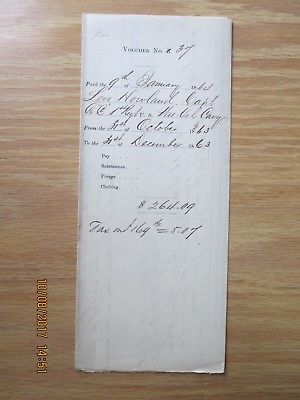 VOUCHER No. 37
Paid the 9th of January 1864
Levi Howland, Capt
Co C 1st
From the 31st of October 1863
To the 31st of December 1863
Pay
Subsistence
Forage
Clothing,
$264.09
Tax on 169 = 5.07
10/08/2017 14:51